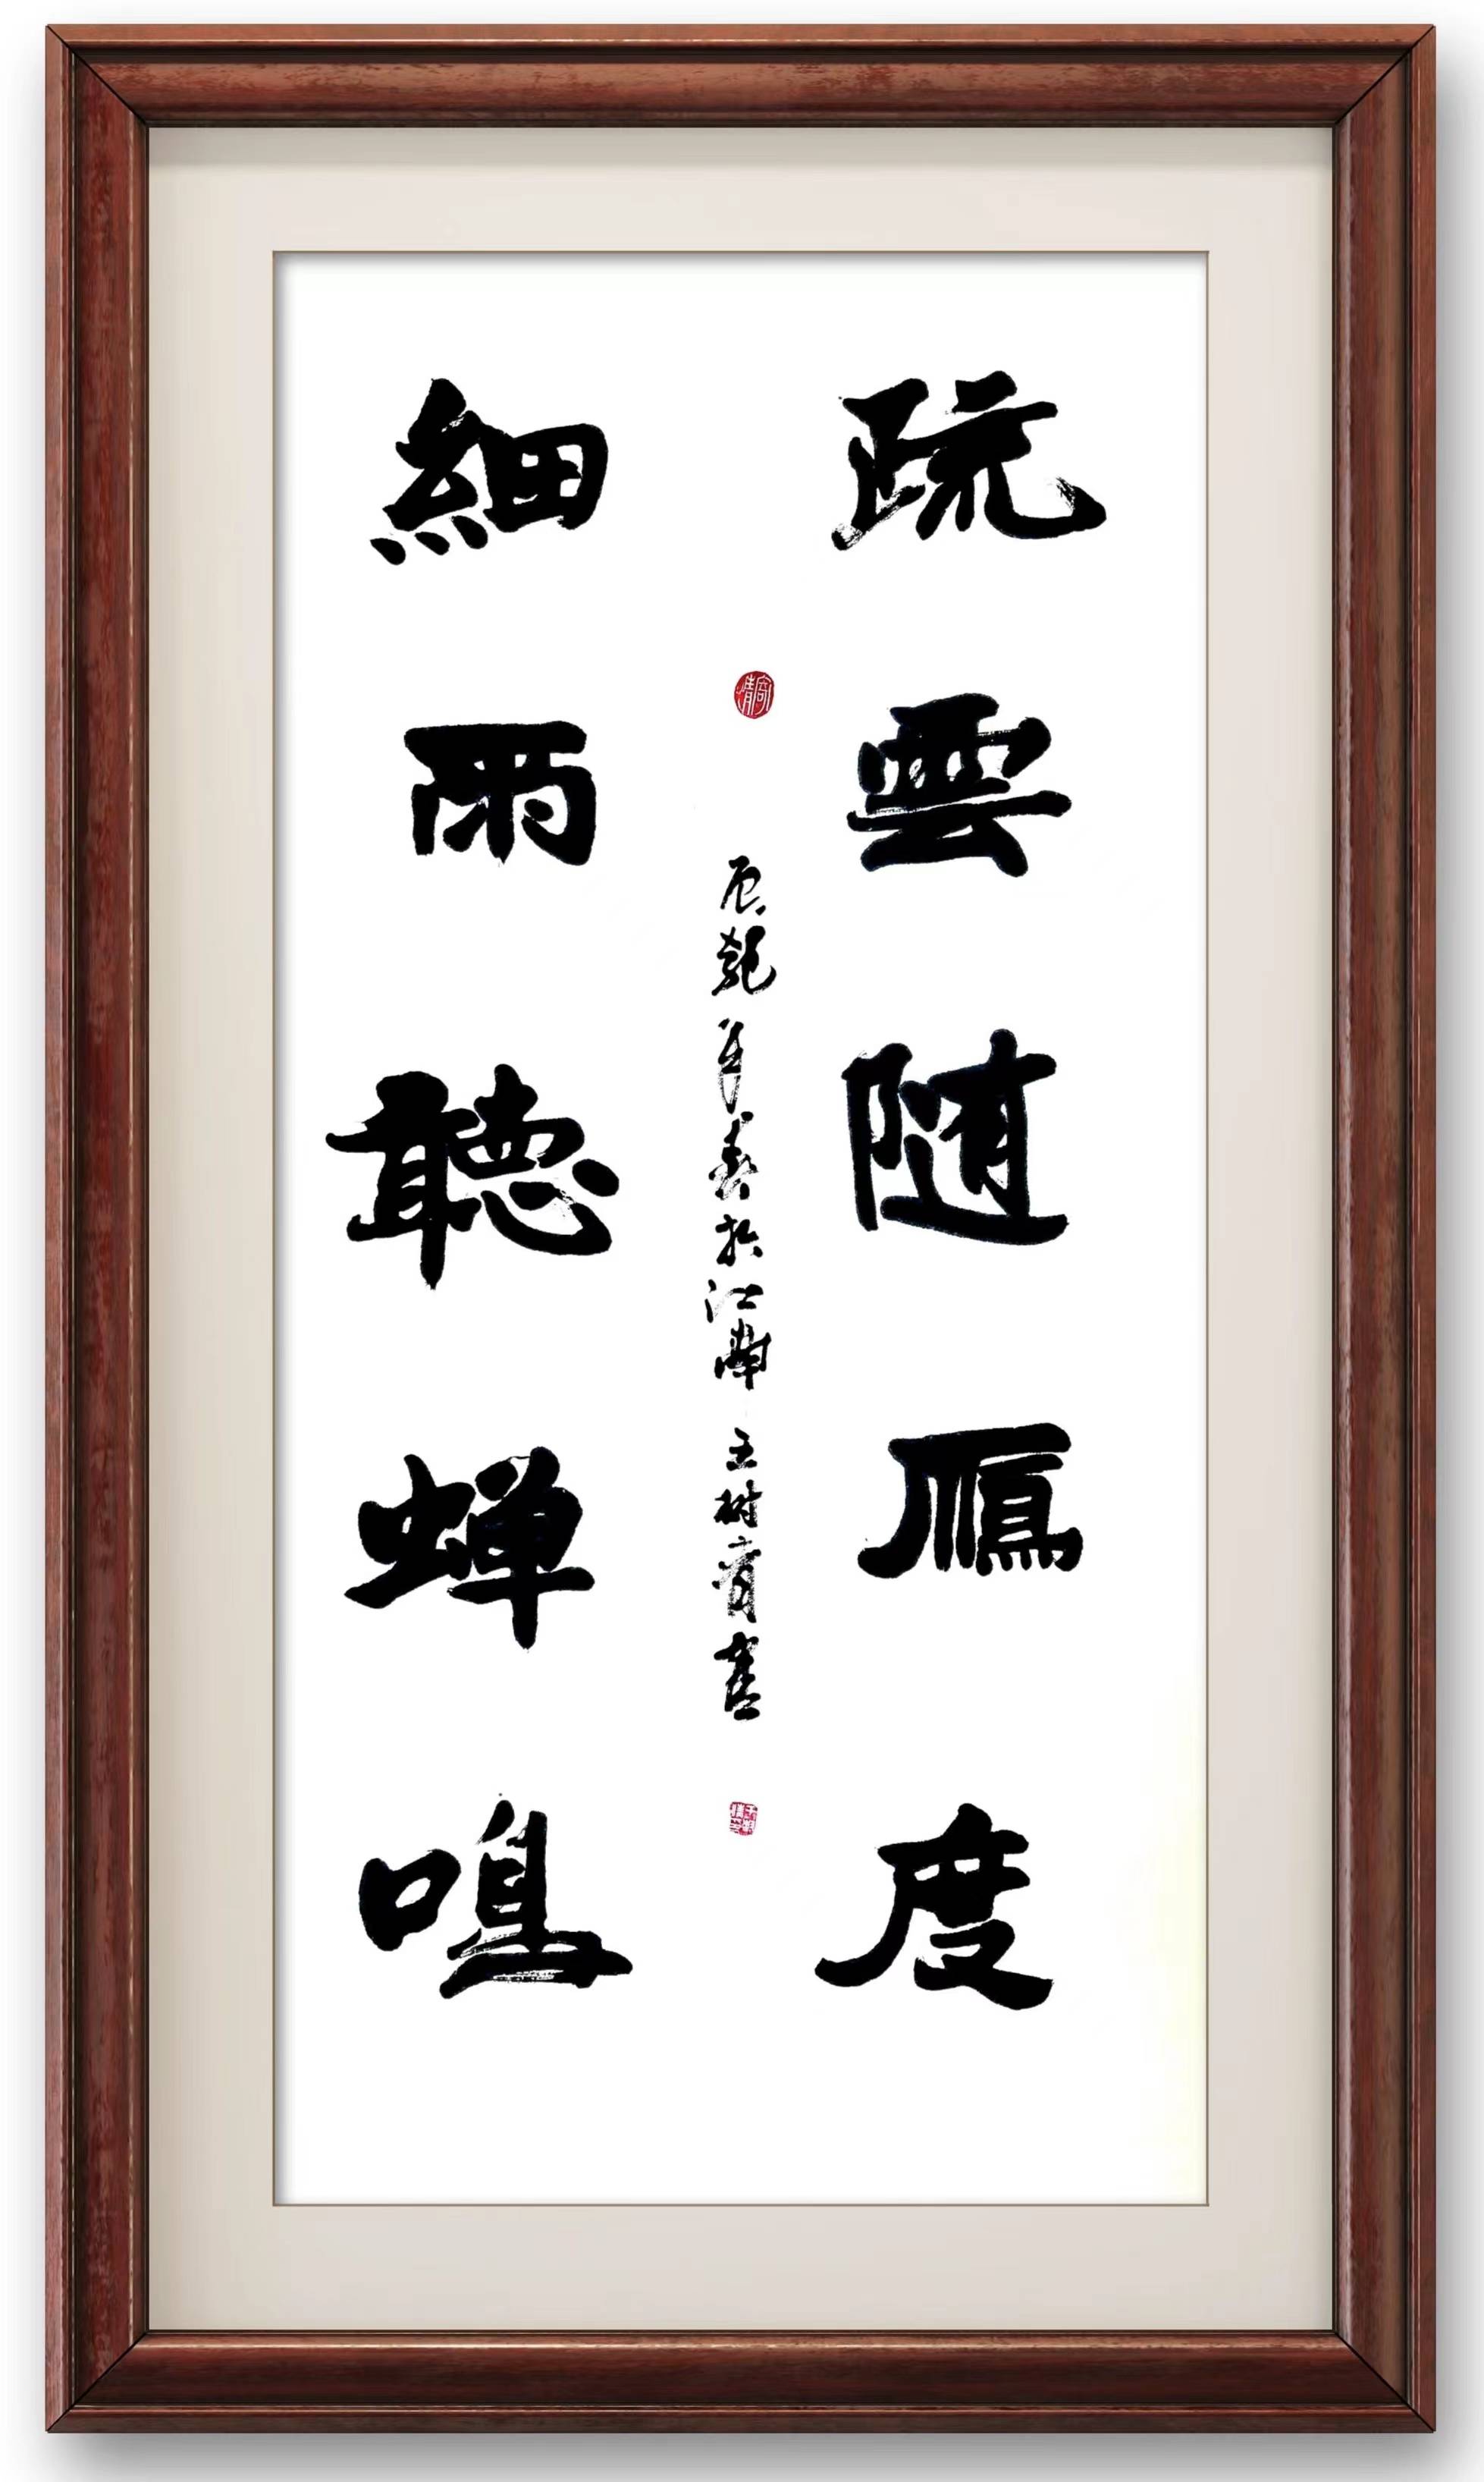 疏雲随雁度
辰龍年春於江南王樹育書
細雨聽蟬鳴